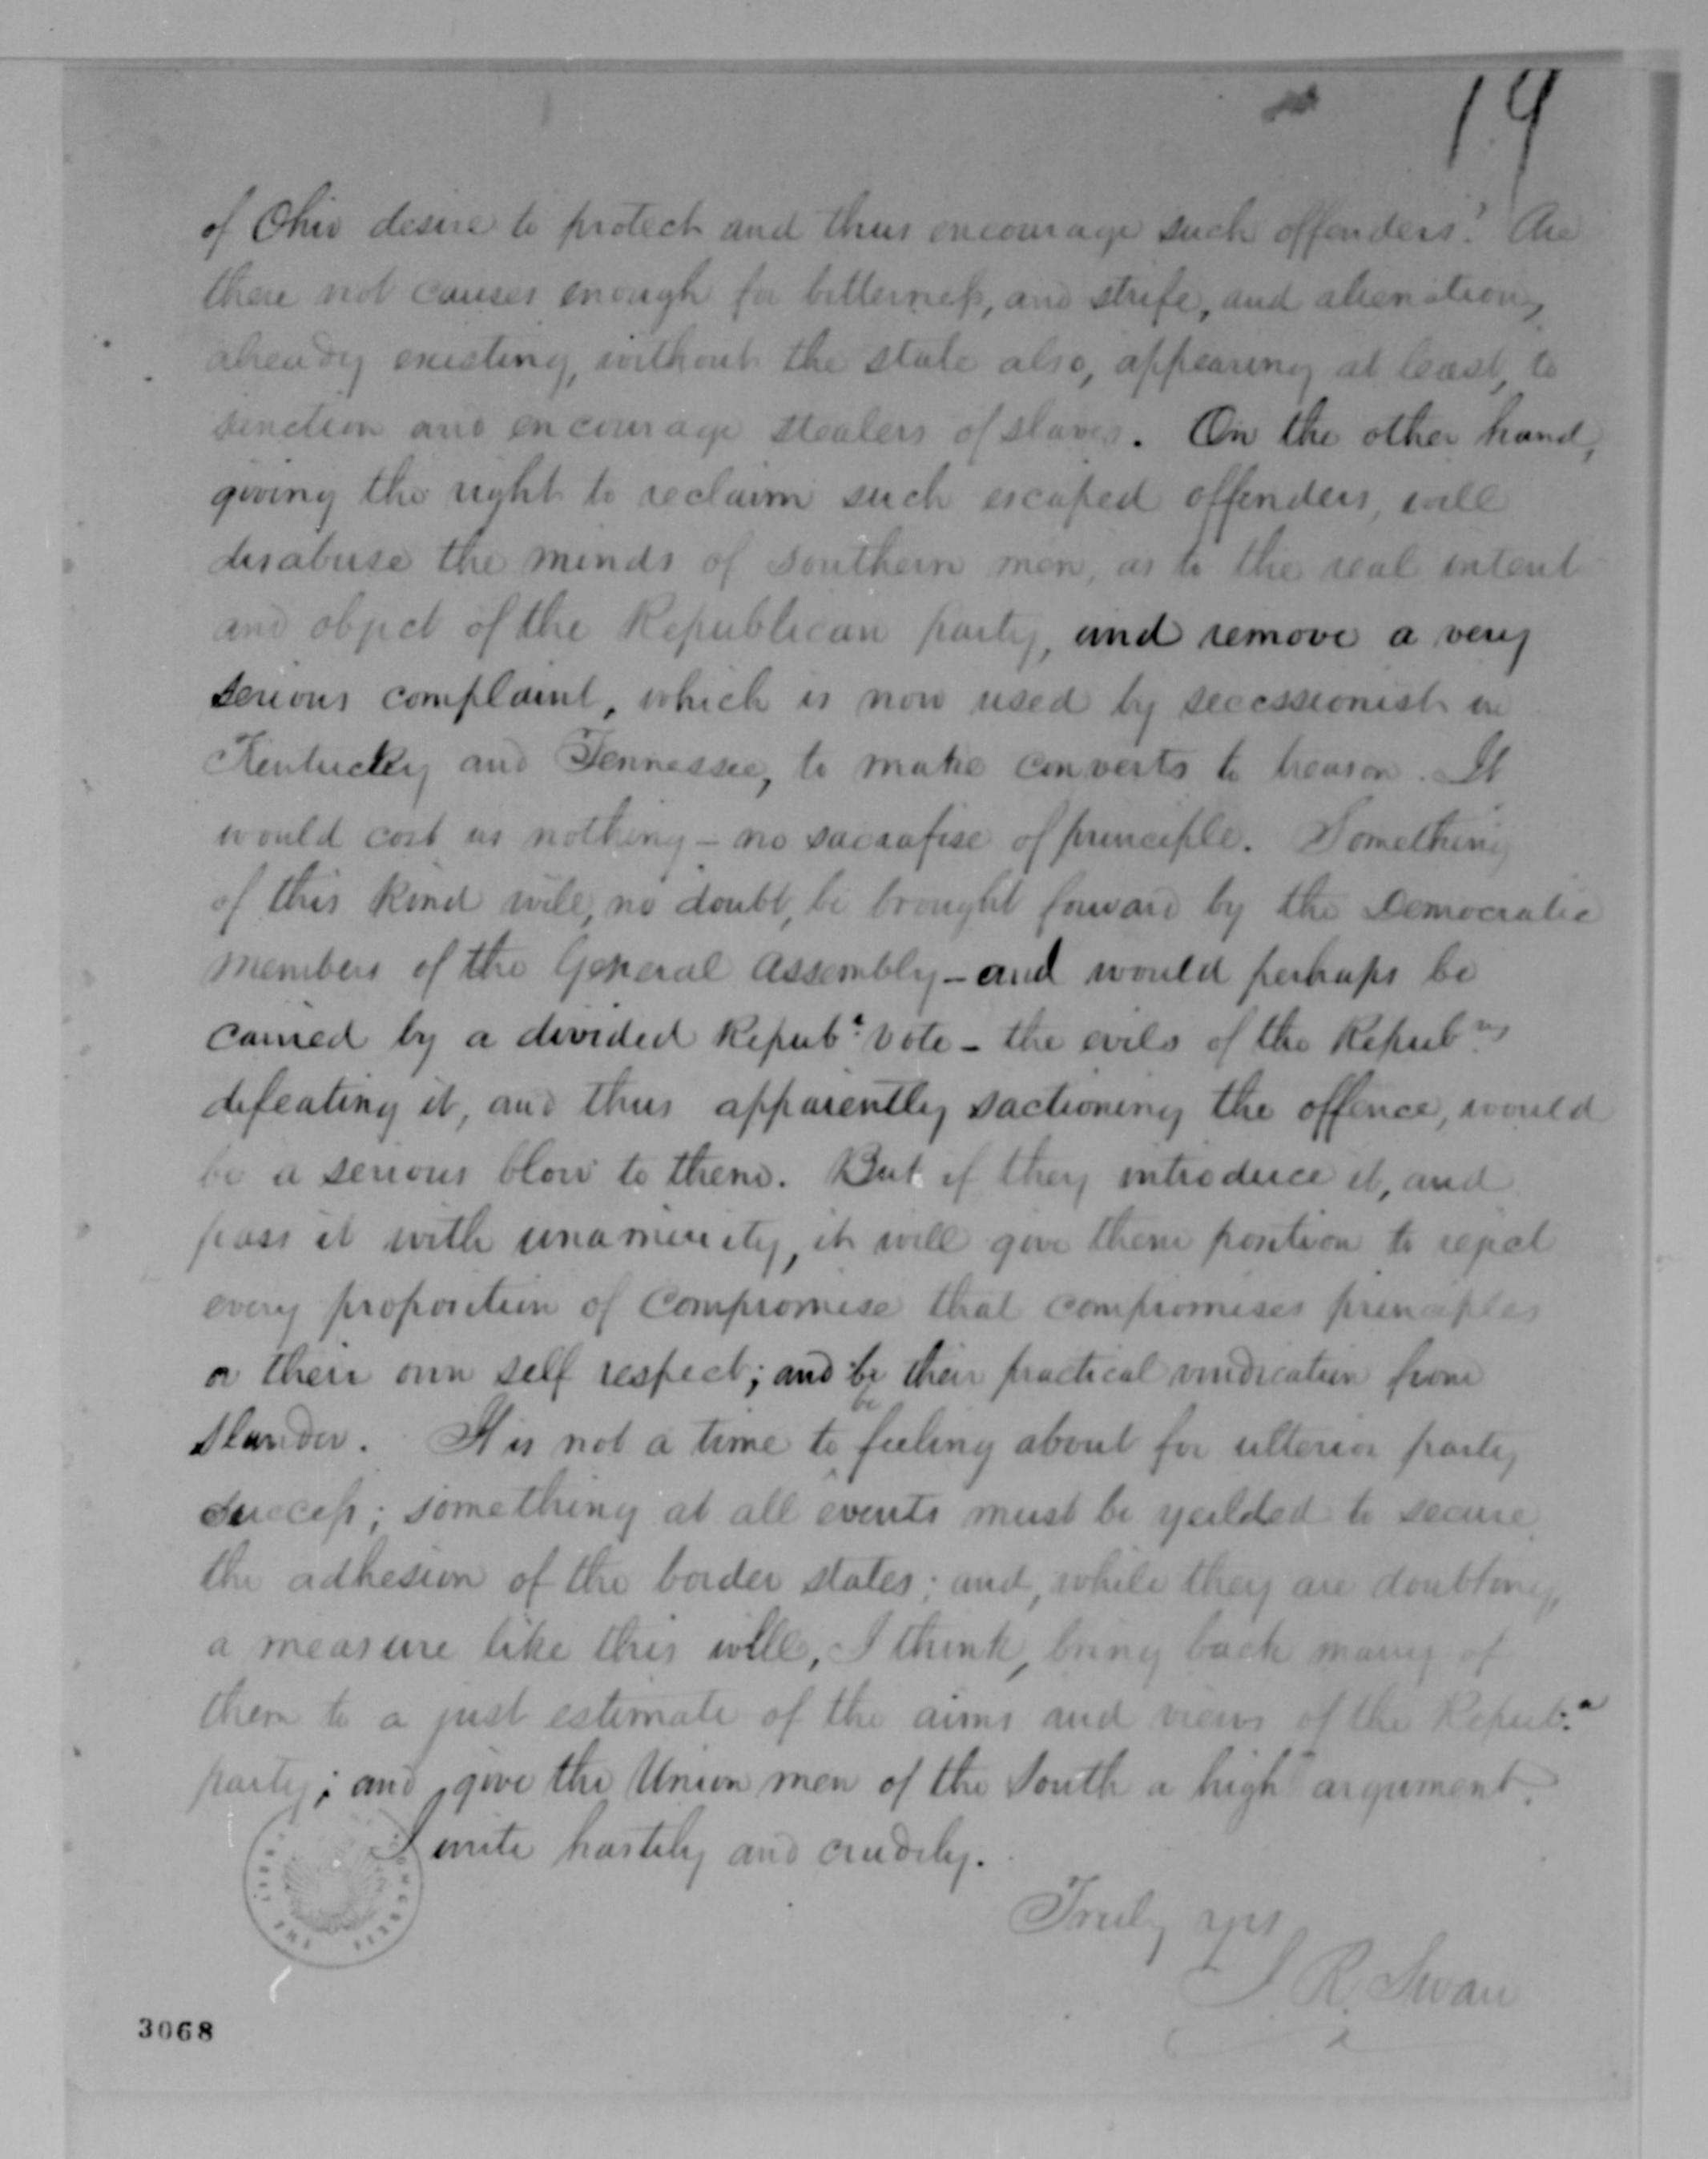 19
of Ohio desire to protect and thus encourage such offenders? Are
there not causes enough for bitterness, and strife, and alienation,
already existing, without the state also, appearing at least, to
sanction and encourage stealers of slaves. On the other hand,
giving the right to reclaim such escaped offenders, will
disabuse the minds of southern men, as to the real intent
and object of the Republican party, and remove a very
serious complaint, which is now used by secessionists in
Kentucky and Tennessee, to make converts to treason. It
would cost us nothing - no sacrafise of principle. Something
of this kind will, no doubt, be brought forward by the Democratic
members of the General Assembly - and would perhaps be
carried by a divided Repubn vote - the evils of the Repubns
defeating it, and thus apparently sactioning the offence, would
be a serious blow to them. But if they introduce it, and
pass it with unaminity, it will give them position to reject
every proposition of compromise that compromises principles
or their own self respect; and be their practical vindication from
slander. It is not a time to be feeling about for ulterior party
success; something at all events must be yeilded to secure
the adhesion of the border states; and, while they are doubting,
a measure like this will, I think, bring back many of
them to a just estimate of the aims and views of the Republn
party; and give the Union men of the South a high argument.
I write hastily and crudely.
Truly yrs
J R. Swan
3068